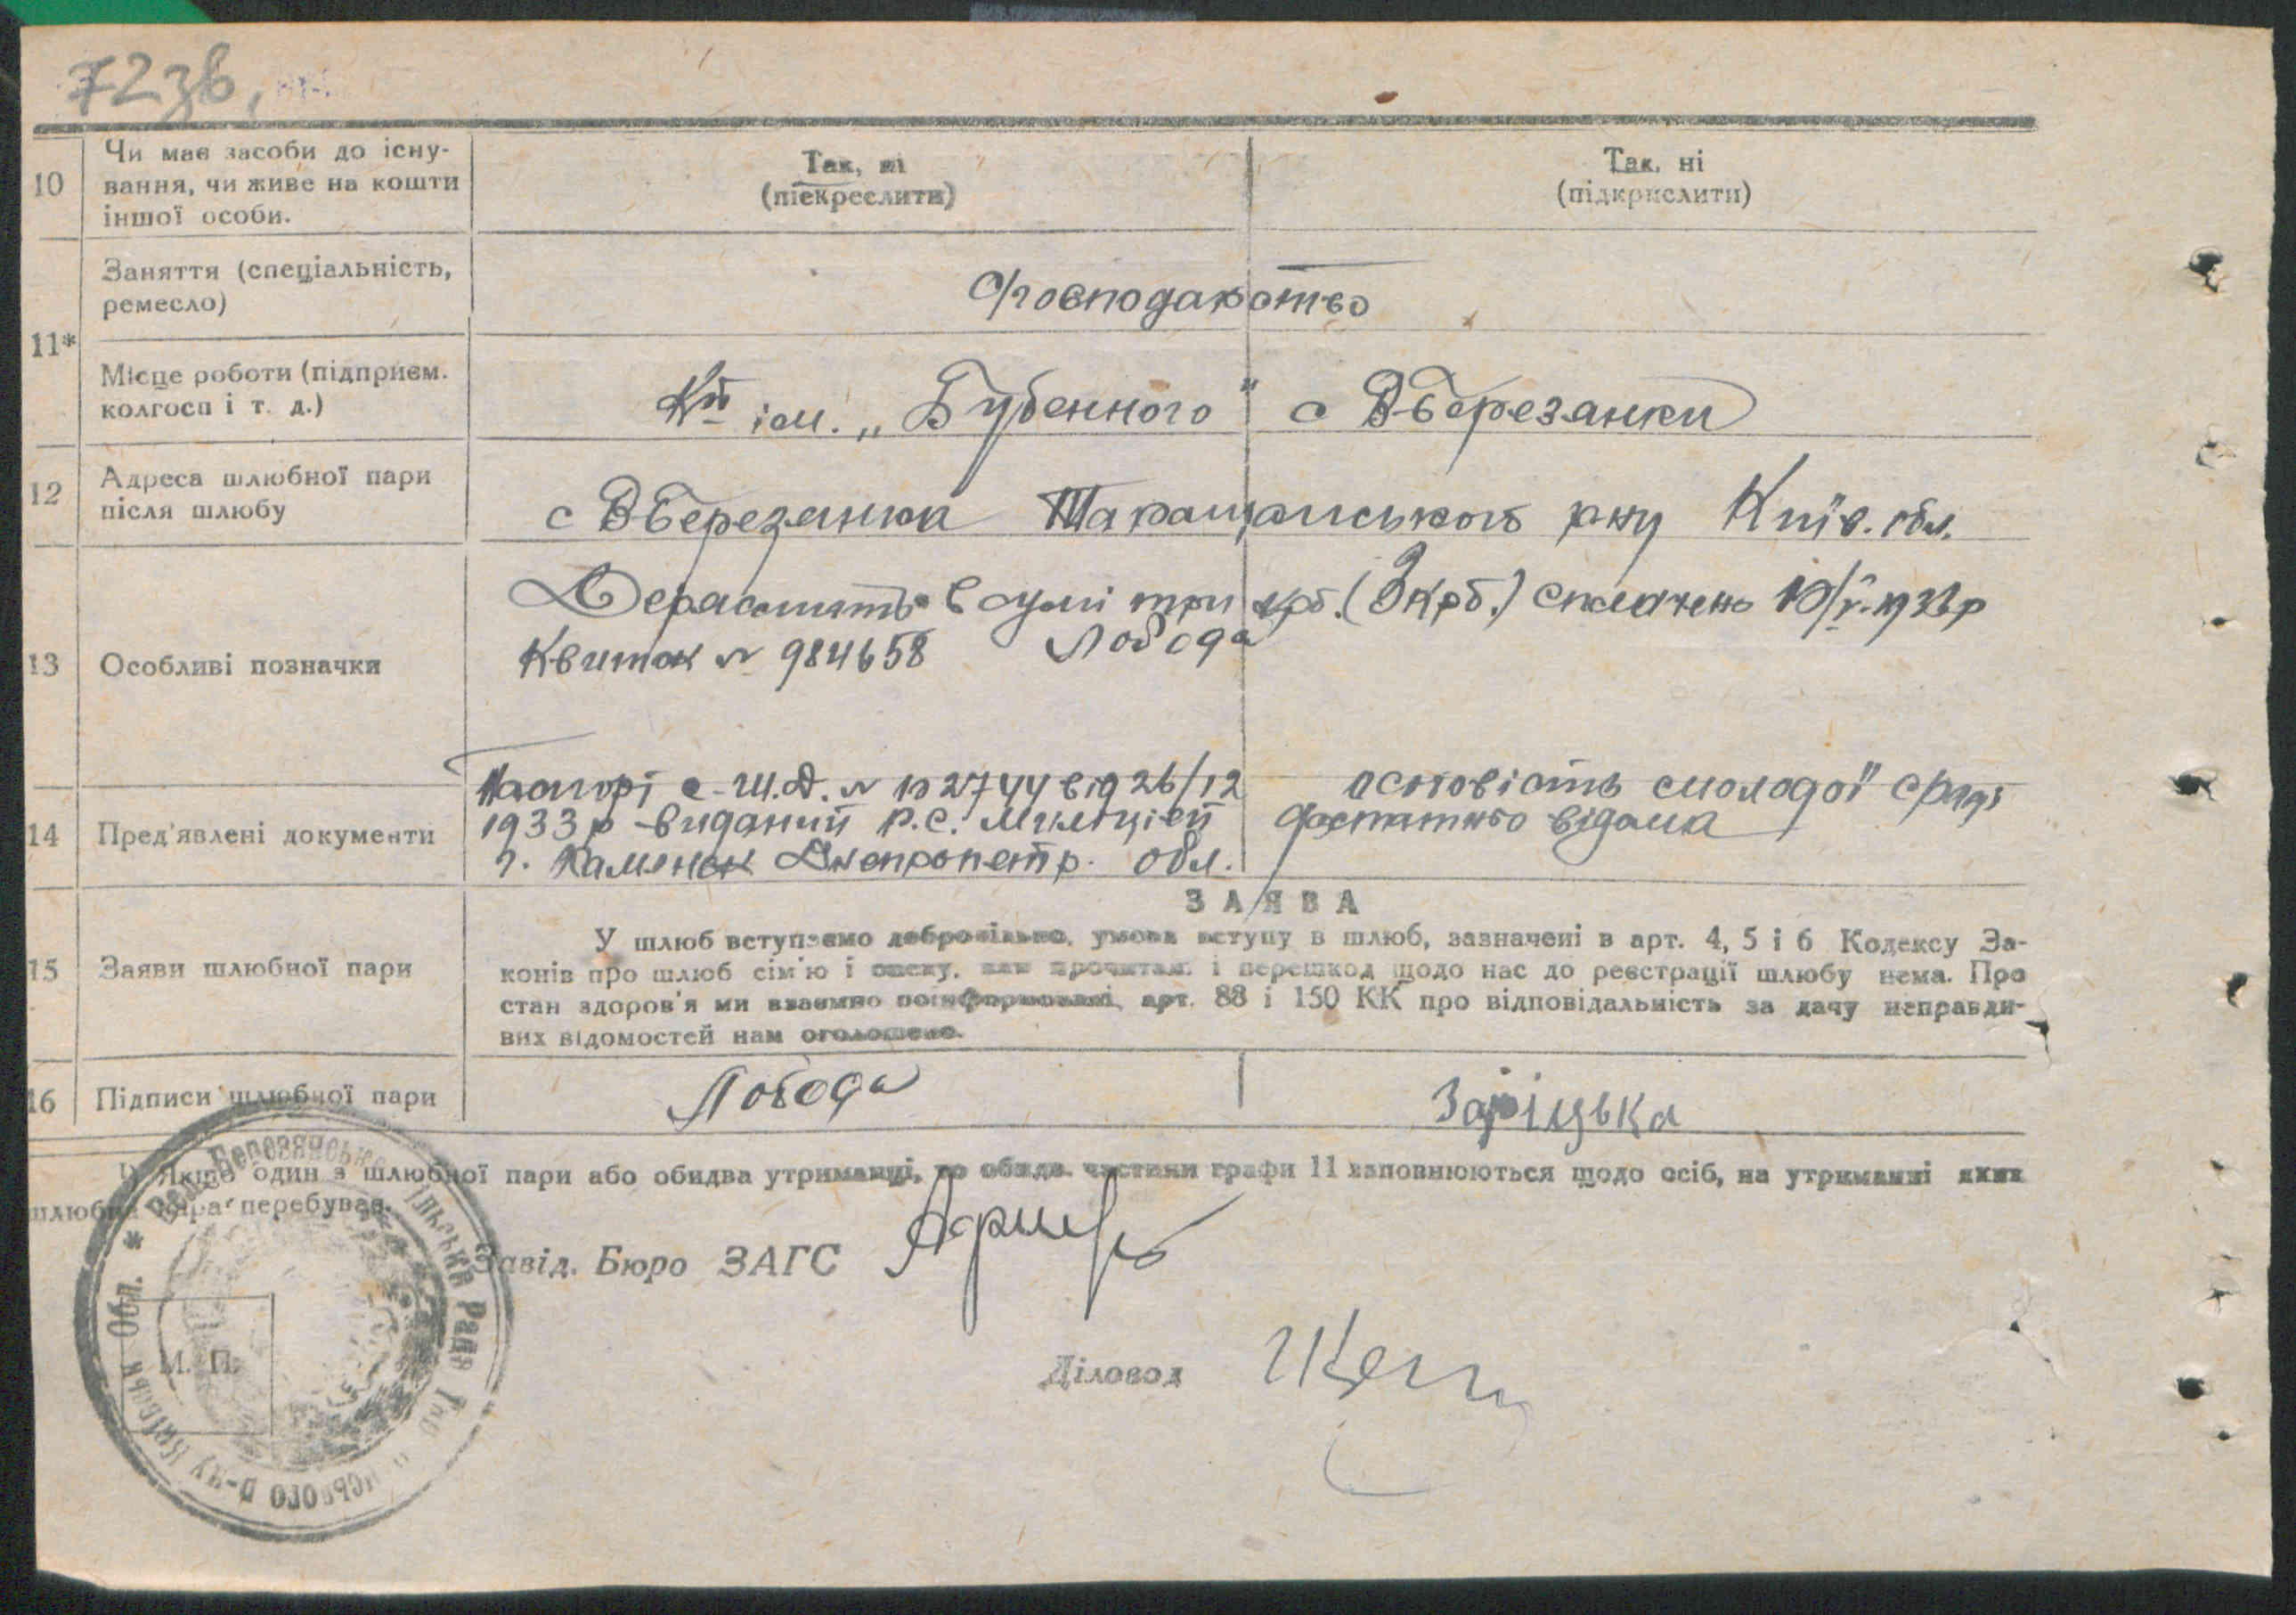 723в,
10
Чи має засоби до існу-
вання, чи живе на кошти
іншої особи.
Так, ні
(піекреслити)
Так, ні
(підкрислити)
11*
Заняття (спеціальність,
ремесло)
С/господарство
Місце роботи (підприєм.
колгосп і т. д.)
Кп ім. „Бубенного" с ВБерезанки
12
Адреса шлюбної пари
після шлюбу
с ВБерезанка Таращанського рну Київ. обл.
13
Особливі позначки
в сумі три крб. (3 крб.) сплачено
Квиток № 984658 Лобода
14
Пред'явлені документи
2744 від 26/12
1933 р виданий Р.С. Міліцієй
г. Каменск Днепропетр. обл.
молодої с/раді
достатньо відома
ЗАЯВА
15
Заяви шлюбної пари
У шлюб вступаємо добровільно, умови вступу в шлюб, зазначені в арт. 4, 5 і 6 Кодексу За-
конів про шлюб сім'ю і опеку, нам прочитані і перешкод щодо нас до реєстрації шлюбу нема. Про
стан здоров'я ми взаємно поінформовані, арт. 88 і 150 КК про відповідальність за дачу неправди-
вих відомостей нам оголошено.
16
Підписи шлюбної пари
Лобода
Заріцька
1) Якщо один з шлюбної пари або обидва утриманці, то обидві частини графи 11 заповнюються щодо осіб, на утриманні яких
шлюбна пара перебуває.
Завід. Бюро ЗАГС
Діловод
М. П.
Березянська Сільська Рада
Київськ Обл.